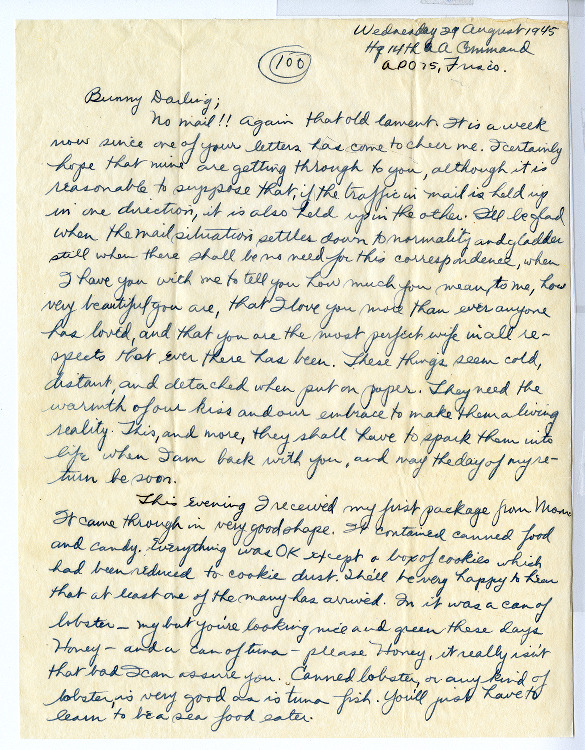 Wednesday 29 August 1945
Hq 14th AA Command
APO 75, Frisco.
100
Bunny Darling;
No mail!! Again that old lament. It is a week
now since one of your letters has come to cheer me. I certainly
hope that mine are getting through to you, although it is
reasonable to suppose that, if the traffic in mail is held up
in one direction, it is also held up in the other. I'll be glad
when the mail situation settles down to normality and gladder
still when there shall be no need for this correspondence, when
I have you with me to tell you how much you mean to me, how
very beautiful you are, that I love you more than ever anyone
has loved, and that you are the most perfect wife in all re-
spects that ever there has been. These things seem cold,
distant, and detached when put on paper. They need the
warmth of our kiss and our embrace to make them a living
reality. This, and more, they shall have to spark them into
life when I am back with you, and may the day of my re-
turn be soon.
This evening I received my first package from Mom.
It came through in very good shape. It contained canned food
and candy. Everything was OK except a box of cookies which
had been reduced to cookie dust. She'll be very happy to hear
that at least one of the many has arrived. In it was a can of
lobster - my but you're looking nice and green these days
Honey - and a can of tuna - please Honey, it really isn't
that bad I can assure you. Canned lobster, or any kind of
lobster, is very good as is tuna fish. You'll just have to
learn to be a sea food eater.